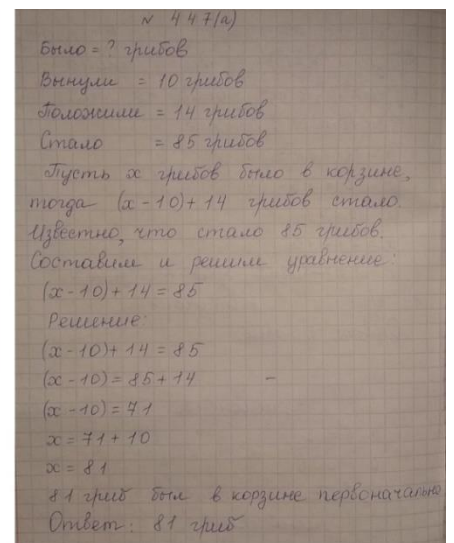 № 447(а)
Было = ? грибов
Вынули = 10 грибов
Положили = 14 грибов
Стало = 85 грибов
Пусть x грибов было в корзине,
тогда (x - 10) + 14 грибов стало.
Известно, что стало 85 грибов.
Составим и решим уравнение:
(x - 10) + 14 = 85
Решение:
(x - 10) + 14 = 85
(x - 10) = 85 + 14
(x - 10) = 71
x = 71 + 10
x = 81
81 гриб был в корзине первоначально
Ответ: 81 гриб